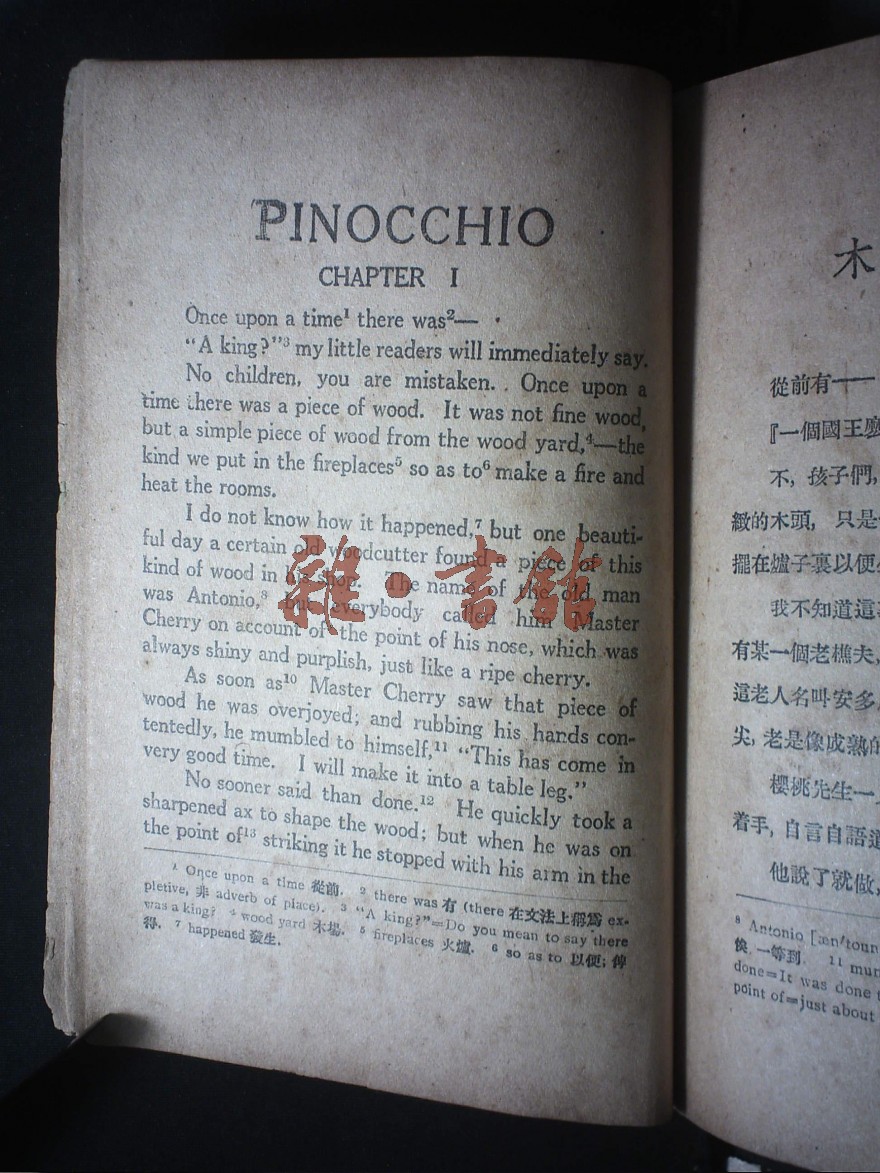 PINOCCHIO
CHAPTER I
Once upon a time¹ there was²—
“A king?”³ my little readers will immediately say.
No children, you are mistaken. Once upon a
time there was a piece of wood. It was not fine wood,
but a simple piece of wood from the wood yard,⁴—the
kind we put in the fireplaces⁵ so as to⁶ make a fire and
heat the rooms.
I do not know how it happened,⁷ but one beauti-
ful day a certain old woodcutter found a piece of this
kind of wood in his shop. The name of the old man
was Antonio,⁸ but everybody called him Master
Cherry on account of the point of his nose, which was
always shiny and purplish, just like a ripe cherry.
As soon as¹⁰ Master Cherry saw that piece of
wood he was overjoyed; and rubbing his hands con-
tentedly, he mumbled to himself,¹¹ “This has come in
very good time. I will make it into a table leg.”
No sooner said than done.¹² He quickly took a
sharpened ax to shape the wood; but when he was on
the point of¹³ striking it he stopped with his arm in the
¹ Once upon a time 從前. ² there was 有 (there 在文法上稱爲 ex-
pletive, 非 adverb of place). ³ “A king?”=Do you mean to say there
was a king? ⁴ wood yard 木場. ⁵ fireplaces 火爐. ⁶ so as to 以便; 俾
得. ⁷ happened 發生.
雜·書館
木
從前有——
『一個國王麼
不, 孩子們,
緻的木頭, 只是
擺在爐子裏以便
我不知道這
有某一個老樵夫,
這老人名叫安多
尖, 老是像成熟的
櫻桃先生一
着手, 自言自語道
他說了就做,
⁸ Antonio
一等到. 11
done=It was done
point of=just about